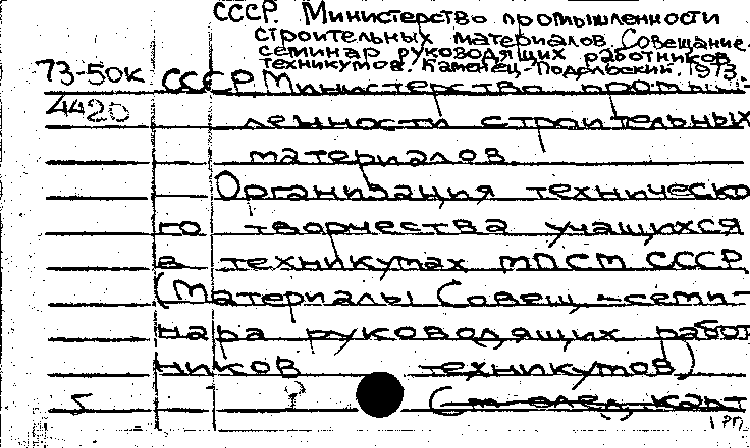 СССР. Министерство промышленности
строительных материалов. Совещание-
семинар руководящих работников
техникумов. Каменец-Подольский. 1973.
73-50к СССР Министерство промыш-
4420 ленности строительных
материалов.
Организация техническо
го творчества учащихся
в техникумах МПСМ СССР
(Материалы Совещ.-семи-
нара руководящих работ
ников техникумов)
5 ?